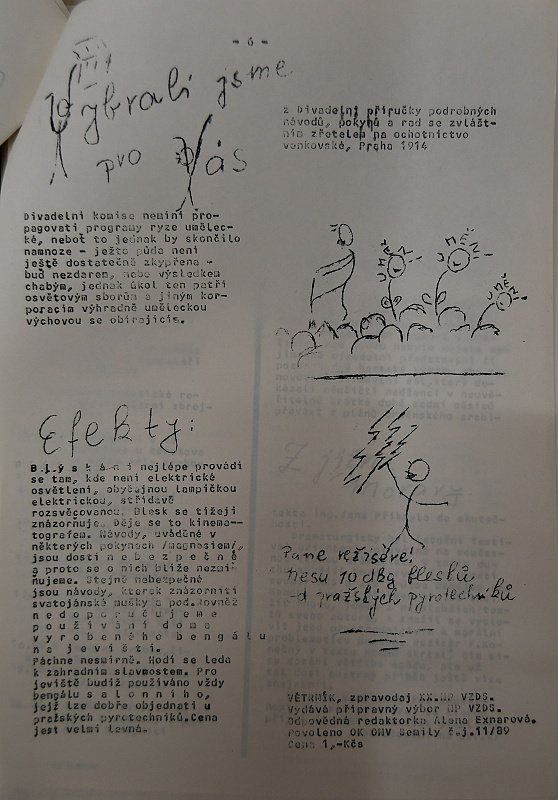 - 6 -
Vybrali jsme
pro Vás
Divadelní komise nemíní pro-
pagovati programy ryze umělec-
ké, neboť to jednak by skončilo
namnoze - ježto půda není
ještě dostatečně zkypřena -
buď nezdarem, nebo výsledkem
chabým, jednak úkol ten patří
osvětovým sborům a jiným kor-
poracím výhradně uměleckou
výchovou se obírajícím.
Efekty:
B l ý s k á n í nejlépe provádí
se tam, kde není elektrické
osvětlení, obyčejnou lampičkou
elektrickou, střídavě
rozsvěcovanou. Blesk se tížeji
znázorňuje. Děje se to kinema-
tografem. Návody, uváděné v
některých pokynech /magnesiem/,
jsou dosti n e b e z p e č n é
a proto se o nich blíže nezmi-
ňujeme. Stejně nebezpečné
jsou návody, kterak znázorniti
svatojánské mušky a pod. Rovněž
n e d o p o r u č u j e m e
p o u ž í v á n í doma
v y r o b e n é h o bengálu
n a j e v i š t i.
Páchne nesmírně. Hodí se leda
k zahradním slavnostem. Pro
jeviště budiž používáno vždy
bengálu s a l o n n í h o,
jejž lze dobře objednati u
pražských pyrotechniků. Cena
jest velmi levná.
z Divadelní příručky podrobných
návodů, pokynů a rad se zvlášt-
ním zřetelem na ochotnictvo
venkovské, Praha 1914
Pane režisére!
Nesu 10 dkg blesků
-od pražských pyrotechniků
VĚTRNÍK, zpravodaj XX.NP VZDS.
Vydává přípravný výbor NP VZDS.
Odpovědná redaktorka Alena Exnarová.
Povoleno OK ONV Semily č.j.11/89
Cena 1,-Kčs